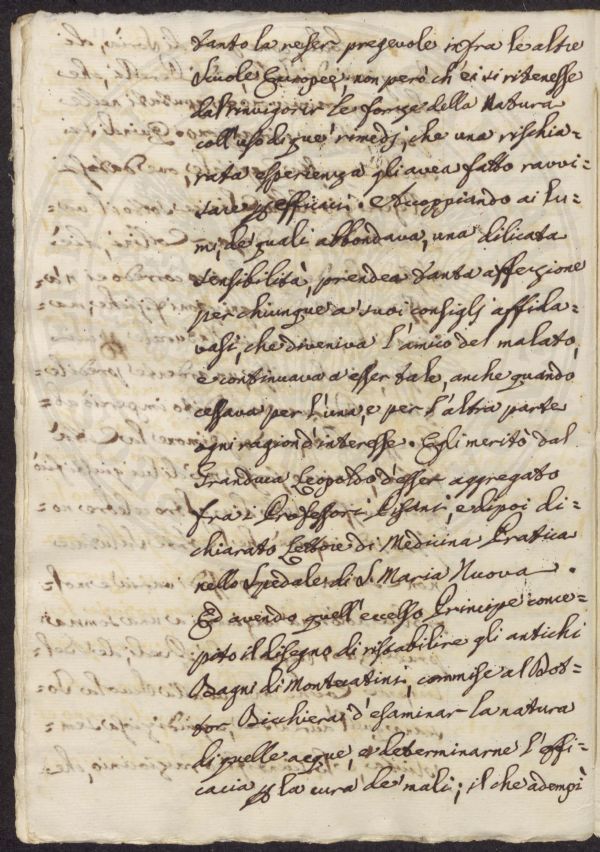 tanto la reser pregevole infra le altre
Scuole Europee, non però ch'ei si ritenesse
dall'invigorir le forze della Natura
coll'uso di que' rimedj, che una rischia=
rata esperienza gli avea fatto ravvi=
sare efficaci. Accoppiando ai lu=
mi, de' quali abbondava, una dilicata
sensibilità, prendea tanta affezione
per chiunque a' suoi consiglj affida=
vasi, che diveniva l'amico del malato,
e continuava a esser tale, anche quando
cessava per l'una, e per l'altra parte
ogni ragion d'interesse. Egli meritò dal
Granduca Leopoldo, d'esser aggregato
fra i Professori Pisani, e dipoi di=
chiarato Lettore di Medicina Pratica
nello Spedale di S. Maria Nuova.
Ed avendo quell'eccelso Principe conce=
pito il disegno di ristabilire gli antichi
Bagni di Montecatini, commise al Dot=
tor Bicchierai d'esaminar la natura
di quelle acque, e determinarne l'effi=
cacia la cura de' mali; il che adempì